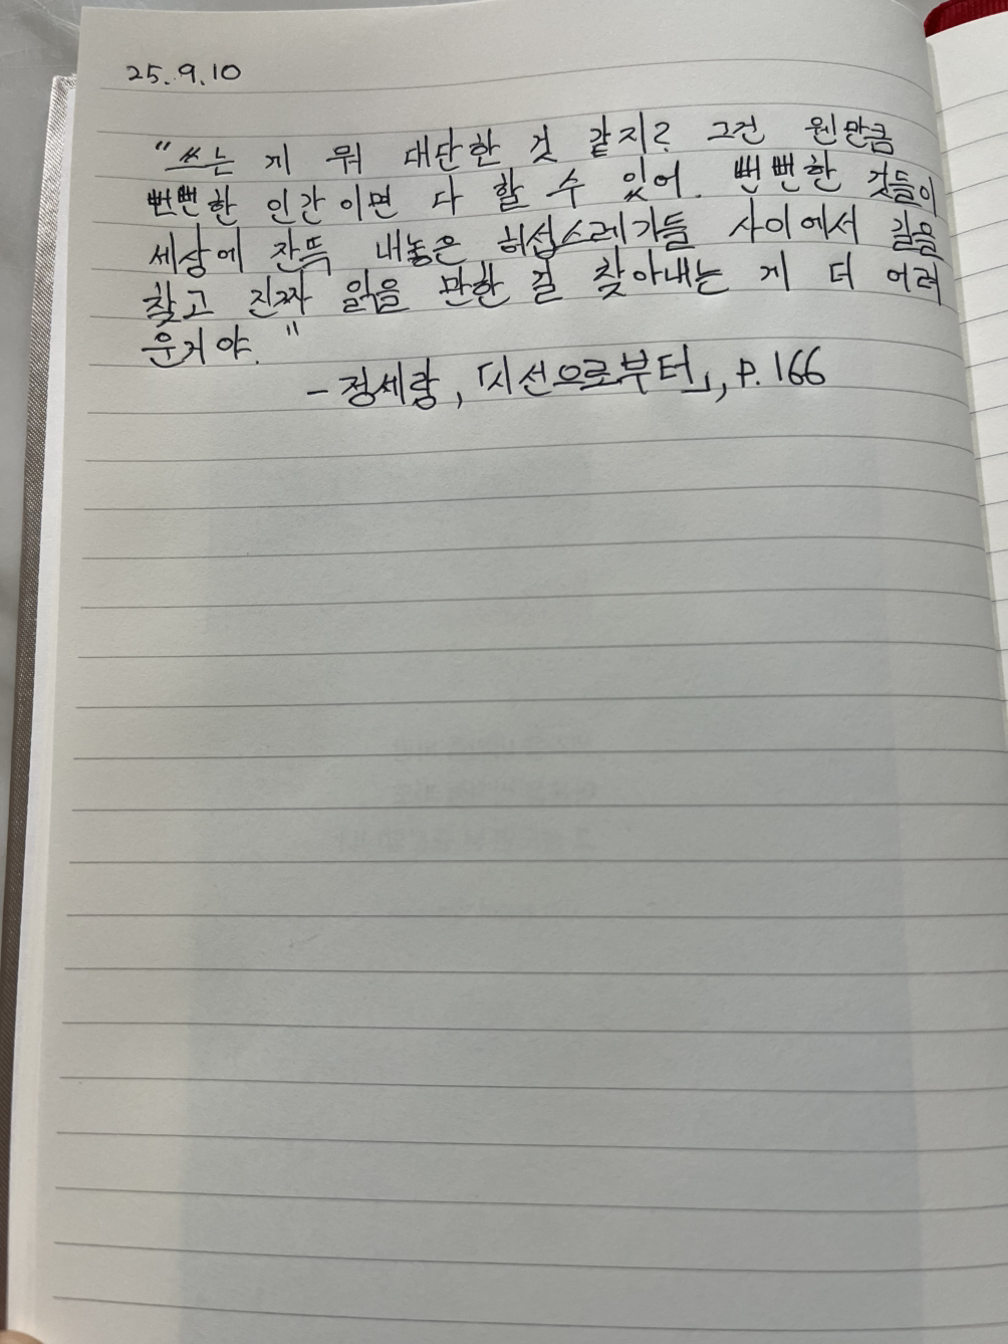 25.9.10
"쓰는 게 뭐 대단한 것 같지? 그건 웬만큼
뻔뻔한 인간이면 다 할 수 있어. 뻔뻔한 것들이
세상에 잔뜩 내놓은 허섭스레기들 사이에서 길을
찾고 진짜 읽을 만한 걸 찾아내는 게 더 어려
운거야."
- 정세랑, 「시선으로부터」, p. 166